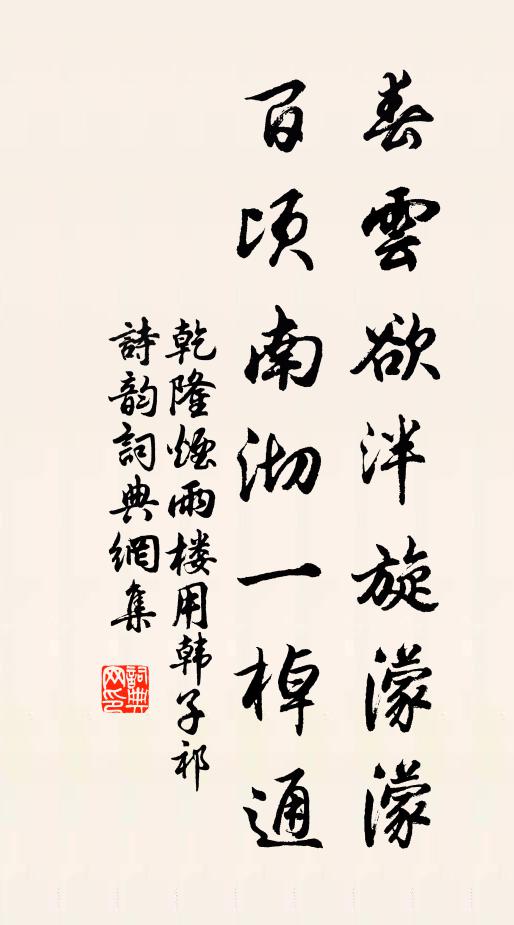 春雲欲泮旋濛濛
百頃南湖一棹通
乾隆煙雨楼用韩子祁
詩韵詞典網集
詞典網印